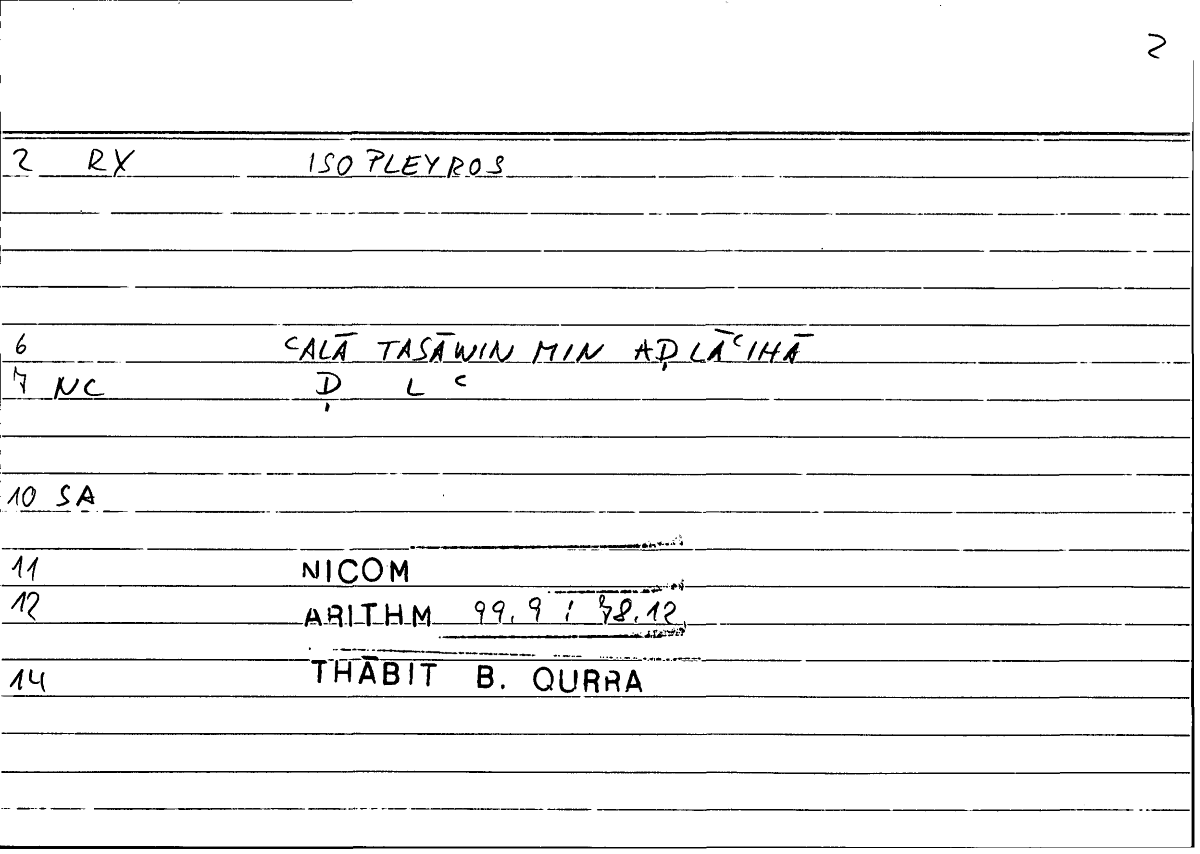 2
2 RX ISOPLEYROS
6 ᶜALĀ TASĀWIN MIN AḌLĀᶜIHĀ
7 NC Ḍ L ᶜ
10 SA
11 NICOM
12 ARITHM 99.9 ; 78.12
14 THĀBIT B. QURRA